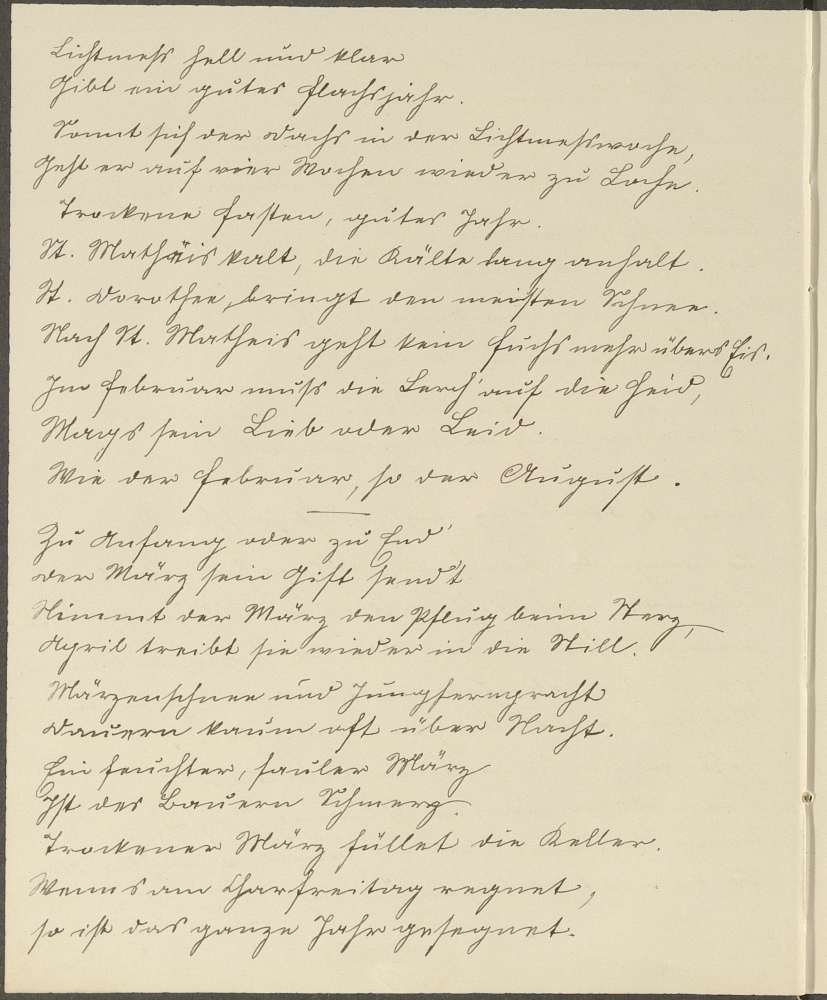 Lichtmess hell und klar
Gibt ein gutes Flachsjahr.
Sonnt sich der Dachs in der Lichtmesswoche,
Geht er auf vier Wochen wieder zu Loche.
Trockene Fasten, gutes Jahr.
St. Mathäis kalt, die Kälte lang anhalt.
St. Dorothee, bringt den meisten Schnee.
Nach St. Matheis geht kein Fuchs mehr übers Eis.
Im Februar muss die Lerch' auf die Heid,
Mags sein Lieb oder Leid.
Wie der Februar, so der August.
Zu Anfang oder zu End'
Der März sein Gift send't
Nimmt der März den Pflug beim Sterz,
April treibt sie wieder in die Still.
Märzenschnee und Jungfernpracht
Dauern kaum oft über Nacht.
Ein feuchter, fauler März
Ist des Bauern Schmerz.
Trockener März füllet die Keller.
Wenns am Charfreitag regnet,
so ist das ganze Jahr gesegnet.